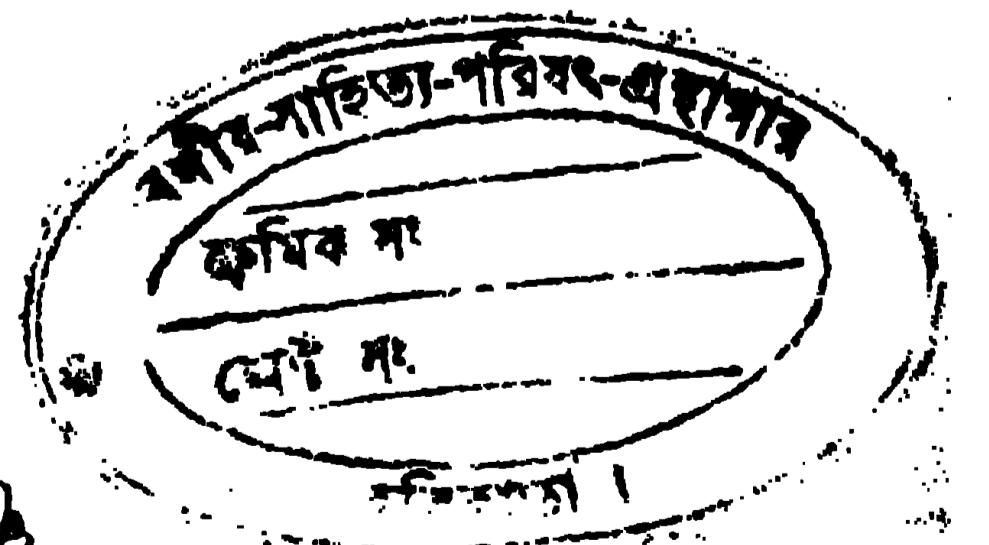 বঙ্গীয়-সাহিত্য-পরিষৎ-গ্রন্থাগার
ক্রমিক সং
সং